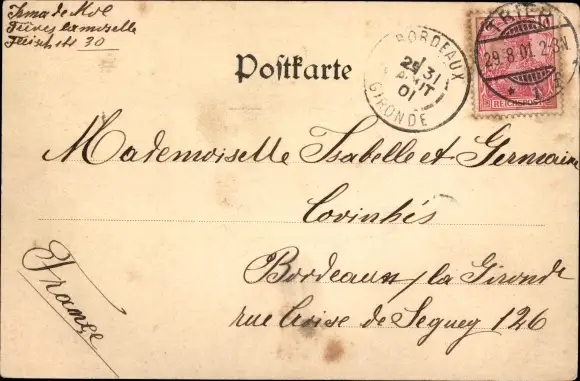 Irma de Mol
Trèves la moselle
Fleisch str 30
Postkarte
BORDEAUX
31
AOUT
01
GIRONDE
TRIER
29.8.01 2-3N
* 1 f
REICHSPOST
Mademoiselle Isabelle et Germaine
Covinhés
Bordeaux, la Gironde
rue Croise de Seguey 126
France